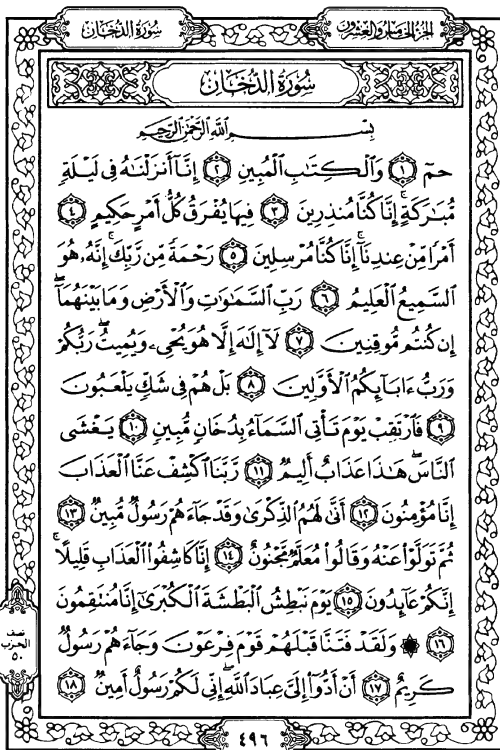 سُورَةُ الدُّخَانِ
الجُزءُ الخَامِسُ وَالعِشْرُونَ
سُورَةُ الدُّخَانِ
بِسْمِ اللَّهِ الرَّحْمَٰنِ الرَّحِيمِ
حمٓ ١ وَٱلْكِتَٰبِ ٱلْمُبِينِ ٢ إِنَّآ أَنزَلْنَٰهُ فِى لَيْلَةٍ
مُّبَٰرَكَةٍ ۚ إِنَّا كُنَّا مُنذِرِينَ ٣ فِيهَا يُفْرَقُ كُلُّ أَمْرٍ حَكِيمٍ ٤
أَمْرًا مِّنْ عِندِنَآ ۚ إِنَّا كُنَّا مُرْسِلِينَ ٥ رَحْمَةً مِّن رَّبِّكَ ۚ إِنَّهُۥ هُوَ
ٱلسَّمِيعُ ٱلْعَلِيمُ ٦ رَبِّ ٱلسَّمَٰوَٰتِ وَٱلْأَرْضِ وَمَا بَيْنَهُمَآ ۖ
إِن كُنتُم مُّوقِنِينَ ٧ لَآ إِلَٰهَ إِلَّا هُوَ يُحْىِۦ وَيُمِيتُ ۖ رَبُّكُمْ
وَرَبُّ ءَابَآئِكُمُ ٱلْأَوَّلِينَ ٨ بَلْ هُمْ فِى شَكٍّ يَلْعَبُونَ
٩ فَٱرْتَقِبْ يَوْمَ تَأْتِى ٱلسَّمَآءُ بِدُخَانٍ مُّبِينٍ ١٠ يَغْشَى
ٱلنَّاسَ ۖ هَٰذَا عَذَابٌ أَلِيمٌ ١١ رَّبَّنَا ٱكْشِفْ عَنَّا ٱلْعَذَابَ
إِنَّا مُؤْمِنُونَ ١٢ أَنَّىٰ لَهُمُ ٱلذِّكْرَىٰ وَقَدْ جَآءَهُمْ رَسُولٌ مُّبِينٌ ١٣
ثُمَّ تَوَلَّوْا۟ عَنْهُ وَقَالُوا۟ مُعَلَّمٌ مَّجْنُونٌ ١٤ إِنَّا كَاشِفُوا۟ ٱلْعَذَابِ قَلِيلًا ۚ
إِنَّكُمْ عَآئِدُونَ ١٥ يَوْمَ نَبْطِشُ ٱلْبَطْشَةَ ٱلْكُبْرَىٰٓ إِنَّا مُنتَقِمُونَ
١٦ ۞ وَلَقَدْ فَتَنَّا قَبْلَهُمْ قَوْمَ فِرْعَوْنَ وَجَآءَهُمْ رَسُولٌ
كَرِيمٌ ١٧ أَنْ أَدُّوٓا۟ إِلَىَّ عِبَادَ ٱللَّهِ ۖ إِنِّى لَكُمْ رَسُولٌ أَمِينٌ ١٨
نصف
الحزب
٥٠
٤٩٦